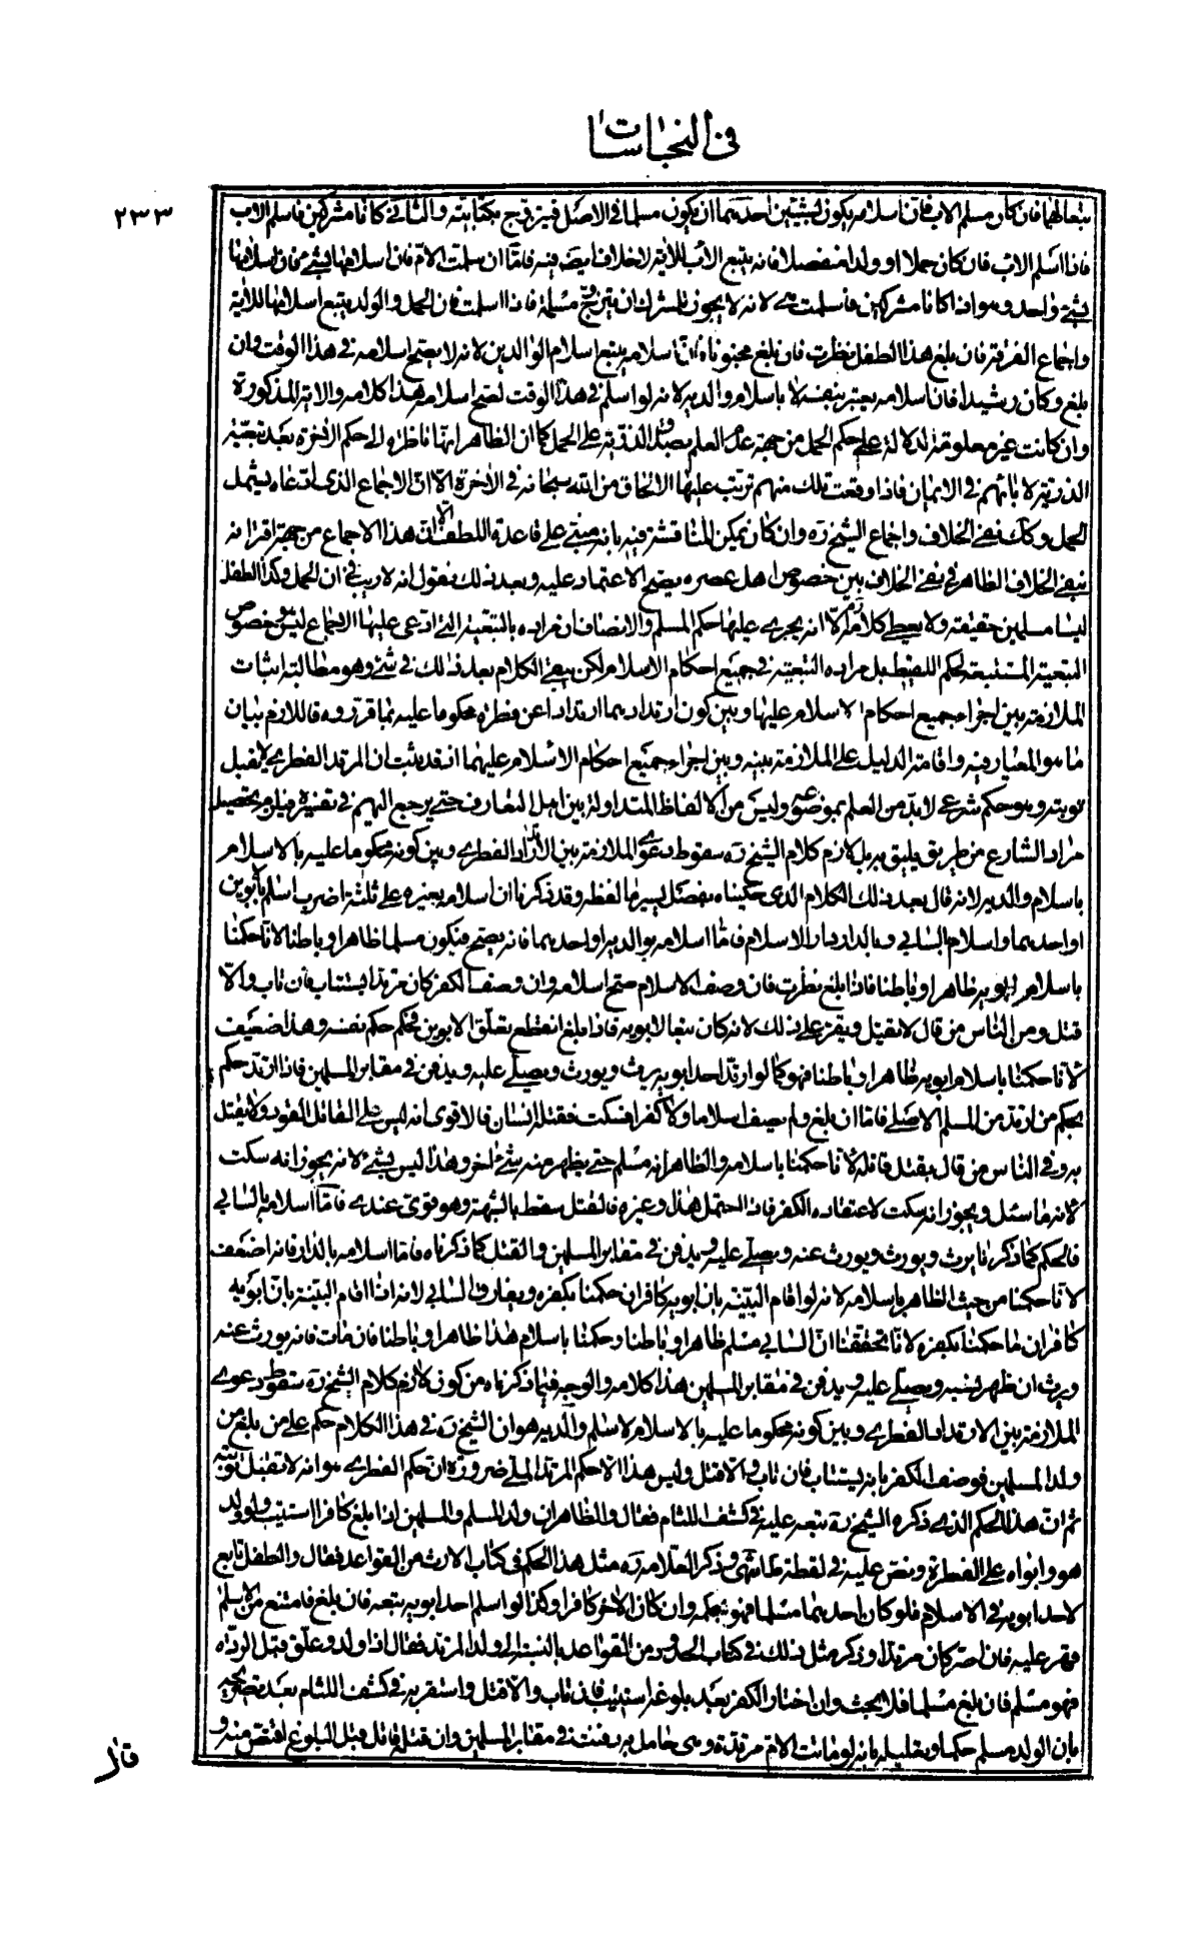 في النجاسات
٢٣٣
تبعا لهما فان كان مسلم الاب فان اسلامه يكون بشيئين احدهما ان يكون مسلما في الاصل فيتزوج بكتابية والثاني كانا مشركين فاسلم الاب
فاذا اسلم الاب فان كان حملا او ولدا منفصلا فانه يتبع الاب للاية لا خلاف ايضا فيه فاما ان اسلمت الام فان اسلامها بشيء فان اسلامها
بشيء واحد وهو اذا كانا مشركين فاسلمت هي لانه لا يجوز للمشرك ان يتزوج مسلمة فاذا اسلمت فان الحمل والولد يتبع اسلامها للاية
واجماع الفرقة فان بلغ هذا الطفل نظرت فان بلغ مجنونا فان اسلامه يتبع اسلام الوالدين لانه لا يصح اسلامه في هذا الوقت وان
بلغ وكان رشيدا فان اسلامه يعتبر بنفسه لا باسلام والديه لانه لو اسلم في هذا الوقت لصح اسلامه هذا كلامه والاية المذكورة
وان كانت غير معلومة الدلالة على حكم الحمل من جهة عدم العلم بصدق الذرية على الحمل كما ان الظاهر انها ناظرة الى حكم الاخرة بعد تبعية
الذرية لابائهم في الايمان فاذا وقعت تلك منهم ترتب عليها الالحاق من الله سبحانه في الاخرة الا ان الاجماع الذي ادعاه يشمل
الحمل وكك نفي الخلاف واجماع الشيخ ره وان كان يمكن المناقشة فيه بانه مبني على قاعدة اللطف الا ان هذا الاجماع من جهة اقترانه
بنفي الخلاف الظاهر في نفي الخلاف بين خصوص اهل عصره يصح الاعتماد عليه وبعد ذلك نقول انه لا ريب في ان الحمل وكذا الطفل
ليسا مسلمين حقيقة ولا يعطي كلامه الا انه يجري عليهما حكم المسلم والانصاف ان مراده بالتبعية التي ادعى عليها الاجماع ليس خصوص
التبعية المستتبعة لحكم بل مراده التبعية في جميع احكام الاسلام لكن يبقى الكلام بعد ذلك في شيء وهو مطالبة اثبات
الملازمة بين اجراء جميع احكام الاسلام عليهما وبين كون ارتدادهما ارتدادا عن فطرة محكوما عليه بما قرروه فاللازم بيان
ما هو المعيار فيه واقامة الدليل على الملازمة بينه وبين اجراء جميع احكام الاسلام عليهما اذ قد ثبت ان المرتد الفطري لا يقبل
توبته وهو حكم شرعي لا بد من العلم بموضوعه وليس من الالفاظ المتداولة بين اهل التعارف حتى يرجع اليهم في تفسيره فيلزم تحصيل
مراد الشارع من طريق يليق به بل لازم كلام الشيخ ره سقوط دعوى الملازمة بين الارتداد الفطري وبين كونه محكوما عليه بالاسلام
باسلام والديه لانه قال بعد ذلك الكلام الذي حكيناه بفصل يسير ما لفظه وقد ذكرنا ان اسلامه بغيره على ثلثة اضرب اسلام بابوين
او احدهما واسلام بالسابي وبالدار دار الاسلام فاما اسلامه بوالديه او احدهما فانه يصح فيكون مسلما ظاهرا وباطنا لانا حكمنا
باسلام ابويه ظاهرا وباطنا فاذا بلغ نظرت فان وصف الاسلام صح اسلامه وان وصف الكفر كان مرتدا يستتاب فان تاب والا
قتل ومن الناس من قال لا يقتل ويقر على ذلك لانه كان تبعا لابويه فاذا بلغ انقطع تعلق الابوين فحكم حكم نفسه وهذا ضعيف
لانا حكمنا باسلام ابويه ظاهرا وباطنا فهو كما لو ارتد احد ابويه يرث ويورث ويصلى عليه ويدفن في مقابر المسلمين فاذا ارتد حكم
بحكم من ارتد من المسلم الاصلي فاما ان بلغ ولم يصف اسلاما ولا كفرا فسكت فقتله انسان فالاقوى انه ليس على القاتل القود ولا يقتل
به وفي الناس من قال يقتل قاتله لانا حكمنا باسلامه والظاهر انه مسلم حتى يظهر منه شيء اخر وهذا ليس بشيء لانه يجوز انه سكت
لانه ما سئل ويجوز انه سكت لاعتقاده الكفر فاذا احتمل هذا وغيره فالقتل سقط بالشبهة وهو قوي عندي فاما اسلامه بالسابي
فالحكم كما ذكرنا يرث ويورث ويورث عنه ويصلى عليه ويدفن في مقابر المسلمين والقتل كما ذكرناه فاما اسلامه بالدار فانه اضعف
لانا حكمنا من حيث الظاهر باسلامه لانه لو اقام البينة بان ابويه كافران حكمنا بكفره ويفارق السابي لانه اذا اقام البينة بان ابويه
كافران ما حكمنا بكفره لانا تحققنا ان السابي مسلم ظاهرا وباطنا وحكمنا باسلام هذا ظاهرا وباطنا فان مات فانه يورث عنه
ويرث ان ظهر نسبه ويصلى عليه ويدفن في مقابر المسلمين هذا كلامه والوجه فيما ذكرناه من كون لازم كلام الشيخ ره سقوط دعوى
الملازمة بين الارتداد الفطري وبين كونه محكوما عليه بالاسلام لاسلام والديه هو ان الشيخ ره في هذا الكلام حكم على من بلغ من
ولد المسلمين فوصف الكفر بانه يستتاب فان تاب والا قتل وليس هذا الا حكم المرتد الملي ضرورة ان حكم الفطري هو انه لا تقبل توبته
ثم ان هذا الحكم الذي ذكره الشيخ ره تبعه عليه في كشف اللثام فقال والظاهر ان ولد المسلم والمسلمين اذا بلغ كافرا استتيب ولو ولد
هو وابواه على الفطرة ونص عليه في لقطة وذكر العلامة ره مثل هذا الحكم في كتاب الارث من القواعد فقال والطفل تابع
لاحد ابويه في الاسلام فلو كان احدهما مسلما فهو بحكمه وان كان الاخر كافرا وكذا لو اسلم احد ابويه تبعه فان بلغ فامتنع من الاسلام
قهر عليه فان اصر كان مرتدا وذكر مثل ذلك في كتاب الحدود من القواعد بالنسبة الى ولد المرتد فقال اذا ولد وعلق قبل الردة
فهو مسلم فان بلغ مسلما فلا بحث وان اختار الكفر بعد بلوغه استتيب فان تاب والا قتل واستقربه في كشف اللثام بعد تصريحه
بان الولد مسلم حكما وتعليله بانه لو ماتت الام مرتدة وهي حامل به دفنت في مقابر المسلمين وان قتله قاتل قبل البلوغ اقتص منه و
قال